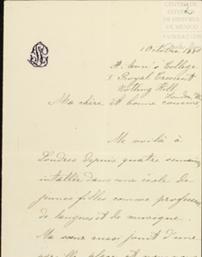 CENTRO DE
DE HISTORIA
DE MEXICO
FUNDACION
1 Octobre 188
St. Ann's College
Royal Crescent
Notting Hill
London W.
Ma chère et bonne cousine,
Me voilà à
Londres depuis quatre semaines
installée dans une école de
jeunes filles comme professeur
de langues et de musique.
Ma sœur aussi jouit d'une